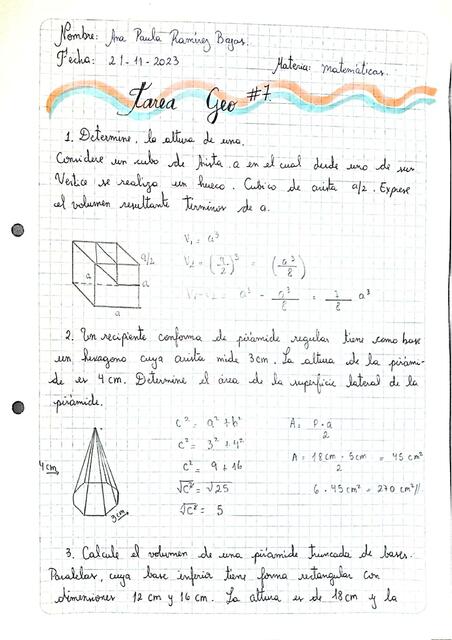 Nombre: Ana Paula Ramírez Bojas.
Fecha: 21-11-2023
Materia: matemáticas.
Tarea Geo #7.
1. Determine, la altura de una.
Considere un cubo de Arista a en el cual desde uno de sus
Vértice se realiza un hueco. Cubico de arista a/2. Exprese
el volumen resultante terminos de a.
a/2
a
a
a
V₁ = a³
V₂ = (a/2)³ = (a³/8)
V₁ - V₂ = a³ - a³/8 = 7/8 a³
2. Un recipiente conforma de pirámide regular tiene como base
un hexagono cuya arista mide 3cm. La altura de la pirámi-
de es 4 cm. Determine el área de la superficie lateral de la
pirámide.
4 cm
3 cm
c² = a² + b²
c² = 3² + 4²
c² = 9 + 16
√c² = √25
√c² = 5
A = P · a / 2
A = 18cm · 5cm / 2 = 45 cm²
6 · 45 cm² = 270 cm²//
3. Calcule el volumen de una pirámide truncada de bases.
Paralelas, cuya base inferior tiene forma rectangular con
dimensiones 12 cm y 16 cm. La altura es de 18cm y la